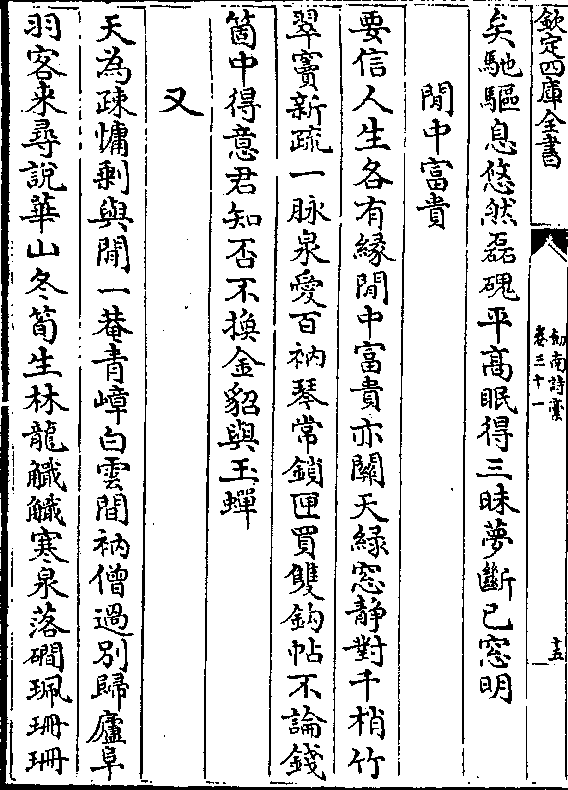 欽定四庫全書
劍南詩藁
卷三十一
十五
矣馳驅息悠然磊磈平高眠得三昧夢斷已窓明
閒中富貴
要信人生各有縁閒中富貴亦關天緑窓靜對千梢竹
翠竇新疏一脉泉愛百衲琴常鎖匣買雙鈎帖不論錢
箇中得意君知否不換金貂與玉蟬
又
天為疎慵剰與閒一菴青嶂白雲間衲僧過别歸廬阜
羽客来尋説華山冬筍生林龍𧤏𧤏寒泉落磵珮珊珊